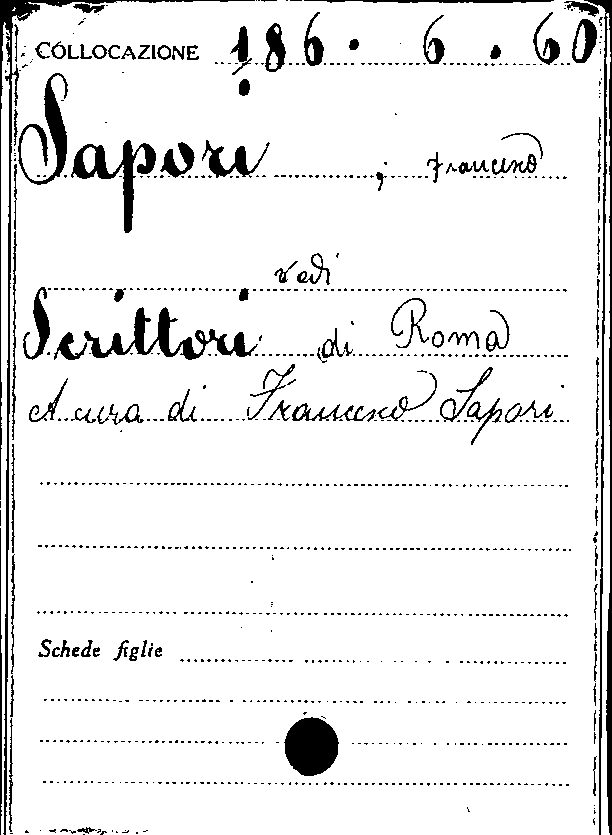 COLLOCAZIONE 186 . 6 . 60
Sapori , Francesco
vedi
Scrittori di Roma
A cura di Francesco Sapori
Schede figlie